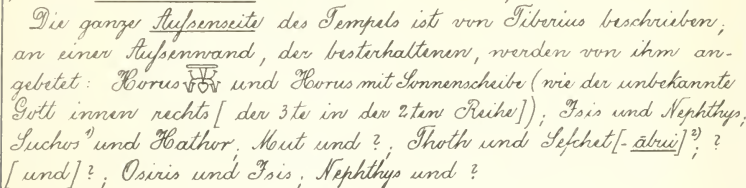 Die ganze Aussenseite des Tempels ist von Tiberius beschrieben;
an einer Aussenwand, der besterhaltenen, werden von ihm an-
gebetet: Horus und Horus mit Sonnenscheibe (wie der unbekannte
Gott innen rechts [der 3te in der 2ten Reihe]); Isis und Nephthys;
Suchos ¹) und Hathor; Mut und ?; Thoth und Sefchet [-ābui] ²); ?
[und] ?; Osiris und Isis; Nephthys und ?